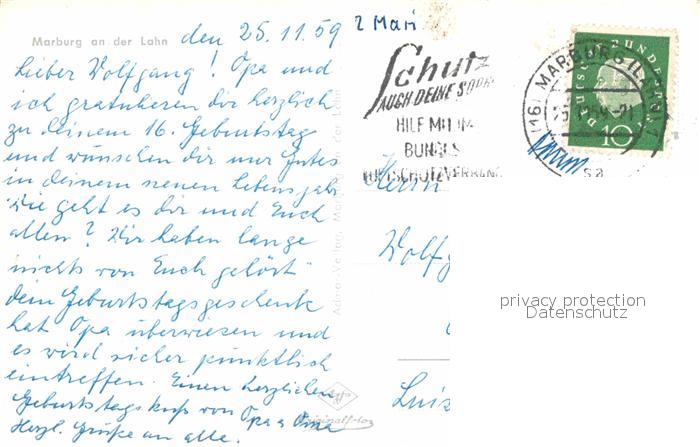 Marburg an der Lahn
den 25.11.59
Lieber Wolfgang! Opa und
ich gratulieren dir herzlich
zu deinem 16. Geburtstag
und wünschen dir nur Gutes
in deinem neuen Lebensjahr
Wie geht es dir und Euch
allen? Wir haben lange
nichts von Euch gehört
dein Geburtstagsgeschenk
hat Opa überwiesen und
es wird sicher pünktlich
eintreffen. Einen herzlichen
Geburtstagskuß von Opa u Oma
Herzl. Grüße an alle.
Schutz
AUCH DEINE
HILF MIT IM
BUNDES
LUFTSCHUTZVERBAND
MARBURG
DEUTSCHE BUNDESPOST
10
Herrn
Wolfg
Luis
privacy protection
Datenschutz